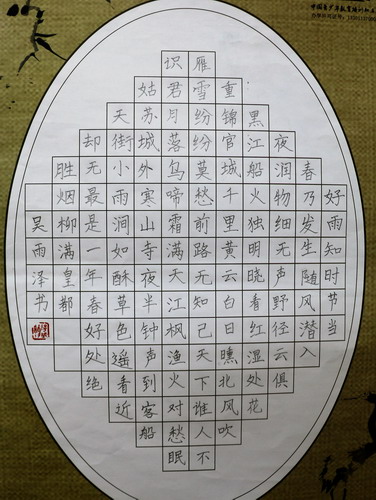 好雨知时节当
春乃发生随风潜入
夜润物细无声野径云俱
黑江船火独明晓看红湿处花
重锦官城千里黄云白日曛北风吹
雁雪纷纷莫愁前路无知己天下谁人不
识君月落乌啼霜满天江枫渔火对愁眠
姑苏城外寒山寺夜半钟声到客船
天街小雨润如酥草色遥看近
却无最是一年春好处绝
胜烟柳满皇都
吴雨泽书